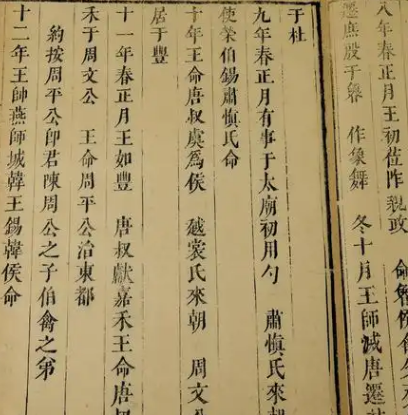 八年春正月王初莅阼親政 命魯侯禽父
遷庶殷于魯 作象舞 冬十月王師滅唐遷
于杜
九年春正月有事于太廟初用勺 肅愼氏來
使榮伯錫肅愼氏命
十年王命唐叔虞爲侯 越裳氏來朝 周文
居于豐
十一年春正月王如豐 唐叔獻嘉禾王命唐叔
禾于周文公 王命周平公治東都
約按周平公卽君陳周公之子伯禽之弟
十二年王師燕師城韓王錫韓侯命